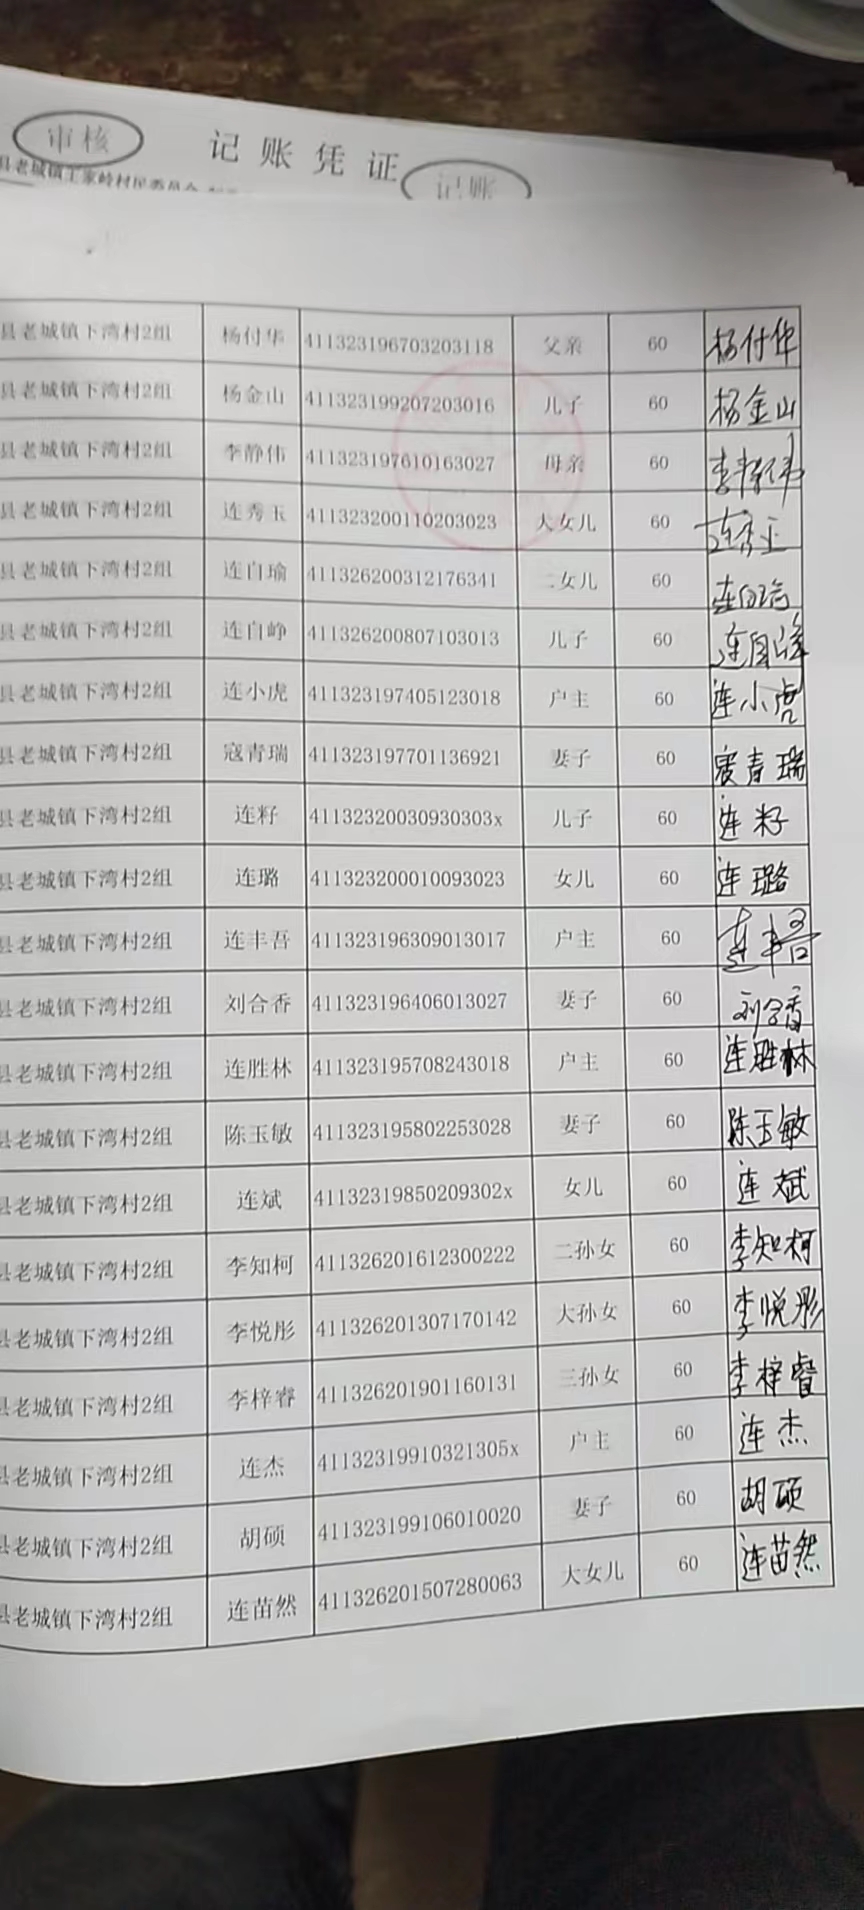 审核
记账凭证
记账
县老城镇下湾村2组 杨付华 411323196703203118 父亲 60 杨付华
县老城镇下湾村2组 杨金山 411323199207203016 儿子 60 杨金山
县老城镇下湾村2组 李静伟 411323197610163027 母亲 60 李静伟
县老城镇下湾村2组 连秀玉 411323200110203023 大女儿 60 连秀玉
县老城镇下湾村2组 连自瑜 411326200312176341 二女儿 60 连自瑜
县老城镇下湾村2组 连自峥 411326200807103013 儿子 60 连自峥
县老城镇下湾村2组 连小虎 411323197405123018 户主 60 连小虎
县老城镇下湾村2组 寇青瑞 411323197701136921 妻子 60 寇青瑞
县老城镇下湾村2组 连籽 41132320030930303x 儿子 60 连籽
县老城镇下湾村2组 连璐 411323200010093023 女儿 60 连璐
县老城镇下湾村2组 连丰吾 411323196309013017 户主 60 连丰吾
县老城镇下湾村2组 刘合香 411323196406013027 妻子 60 刘合香
县老城镇下湾村2组 连胜林 411323195708243018 户主 60 连胜林
县老城镇下湾村2组 陈玉敏 411323195802253028 妻子 60 陈玉敏
县老城镇下湾村2组 连斌 41132319850209302x 女儿 60 连斌
县老城镇下湾村2组 李知柯 411326201612300222 二孙女 60 李知柯
县老城镇下湾村2组 李悦彤 411326201307170142 大孙女 60 李悦彤
县老城镇下湾村2组 李梓睿 411326201901160131 三孙女 60 李梓睿
县老城镇下湾村2组 连杰 41132319910321305x 户主 60 连杰
县老城镇下湾村2组 胡硕 411323199106010020 妻子 60 胡硕
县老城镇下湾村2组 连苗然 411326201507280063 大女儿 60 连苗然